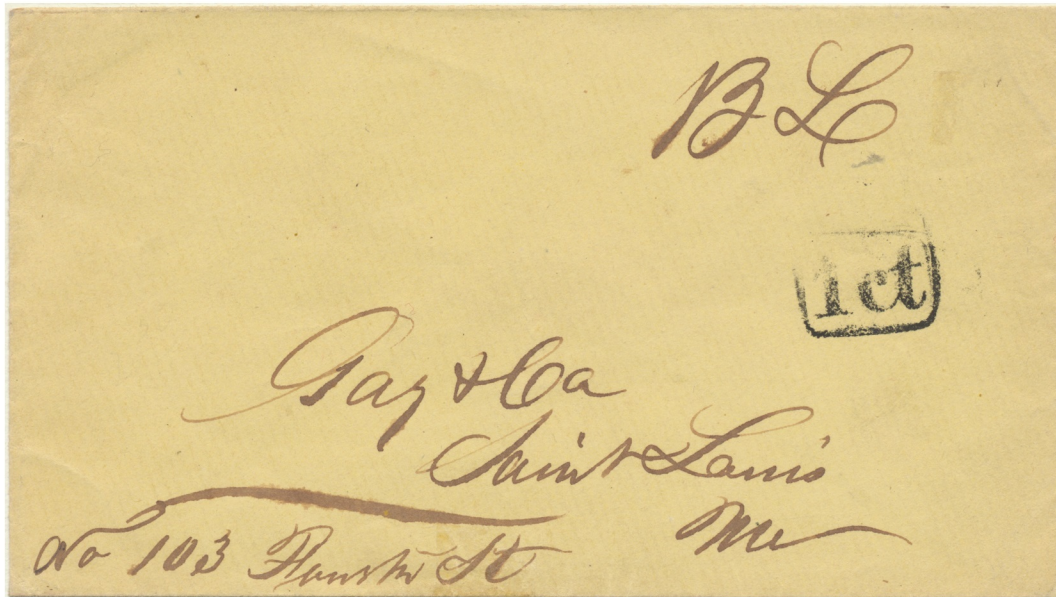 B L
1 ct
Gay & Co
Saint Louis
Mo
No 103 Fourth St